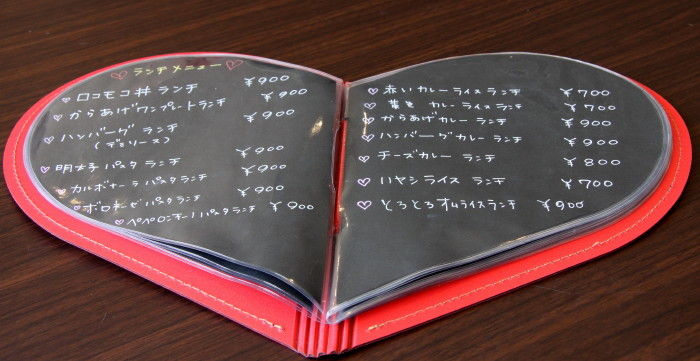 ♡ランチメニュー♡
♡ロコモコ丼ランチ ¥900
♡からあげワンプレートランチ ¥900
♡ハンバーグ ランチ ¥900
(デミソース)
♡明太子パスタランチ ¥900
♡カルボナーラパスタランチ ¥900
♡ボロネーゼパスタランチ ¥900
♡ペペロンチーノパスタランチ ¥900
♡赤いカレーライスランチ ¥700
♡ カレーライスランチ ¥700
♡からあげカレーランチ ¥900
♡ハンバーグカレーランチ ¥900
♡チーズカレーランチ ¥800
♡ハヤシライスランチ ¥700
♡とろとろオムライスランチ ¥900